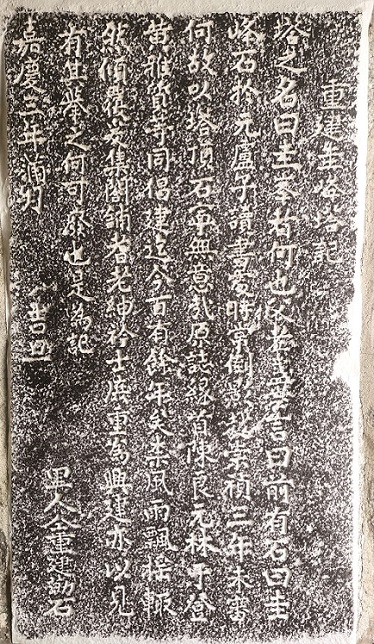 重建圭峰塔記
塔之名曰圭峯者何也欲考舊党言曰前有石曰圭
峰石於元盧子讀書處時常倒影我崇禎二年未審
何故以塔頂石中無意哉原誌線首陳良元林于登
黃雅質等同倡建迄今百有餘年矣柰風雨飄搖輒
然傾覆爰集閤鋪耆老紳衿士庶重為興建亦以見
有其舉之何可廢也是為記
嘉慶三年蒲月 吉旦 里人仝重建勒石